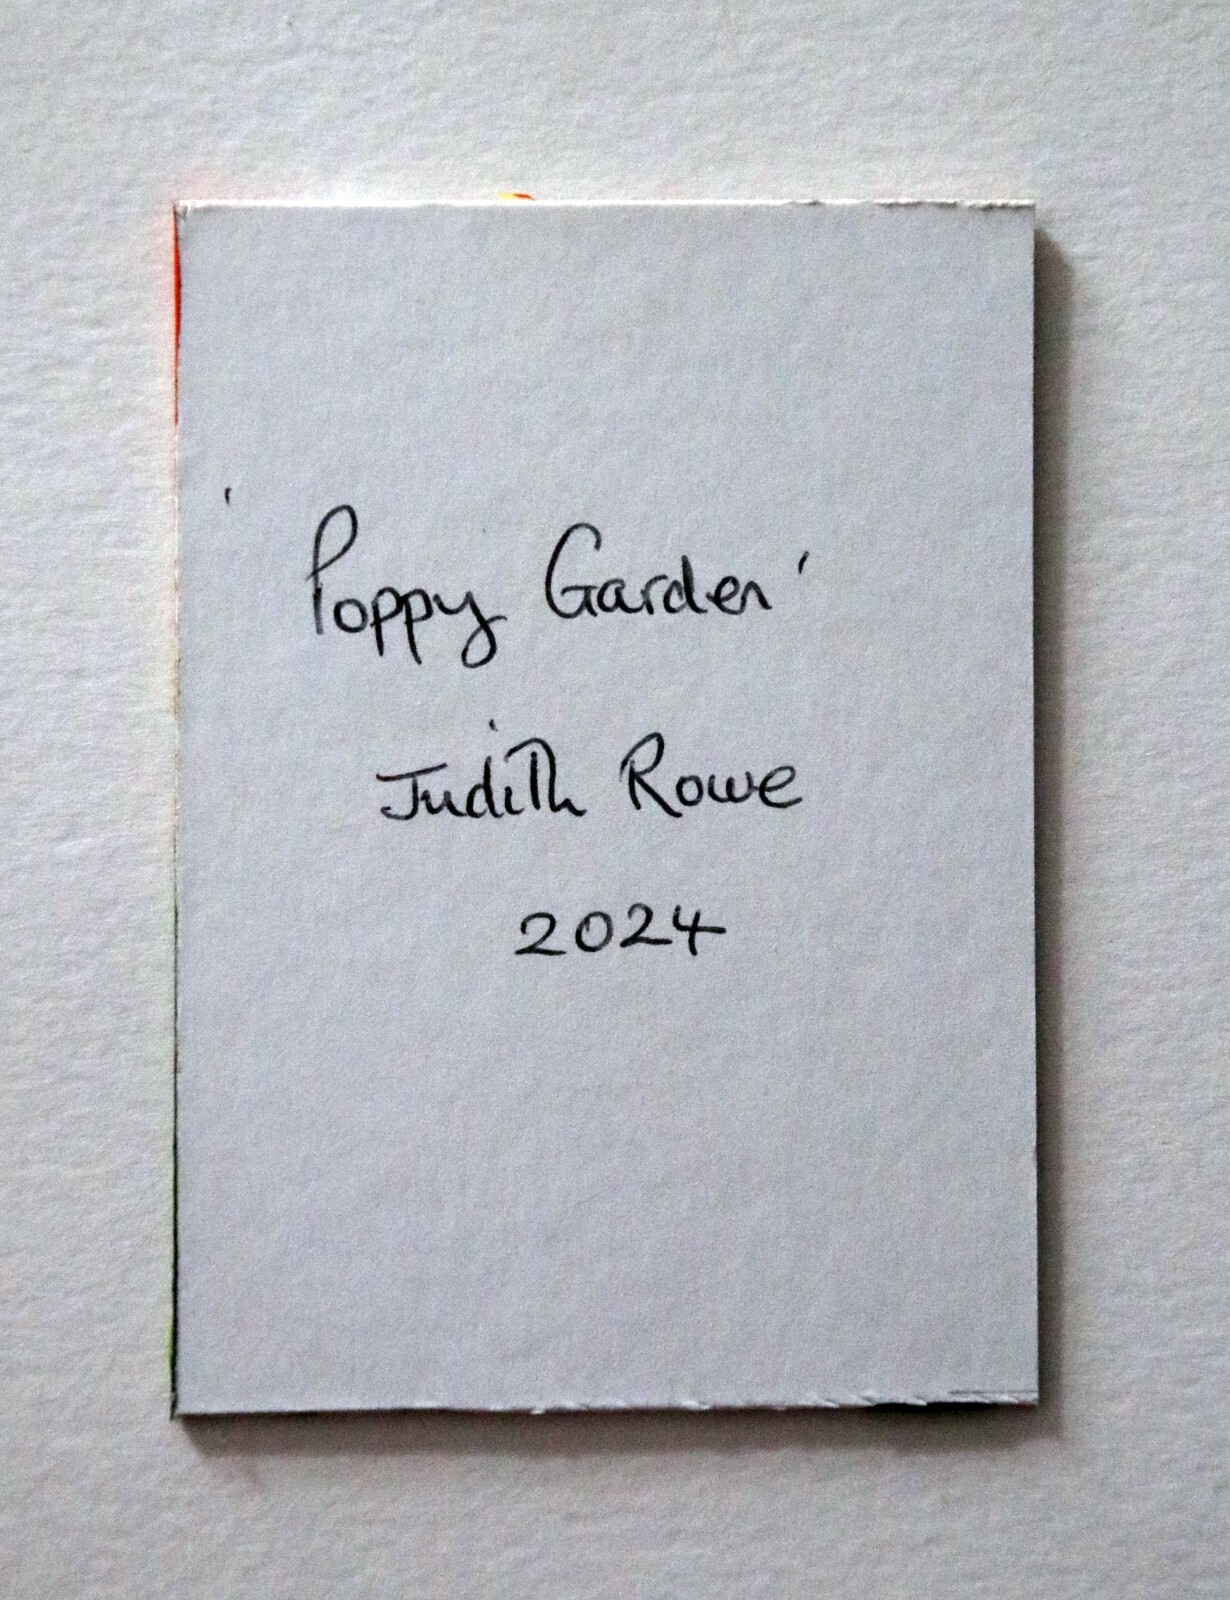 'Poppy Garden'
Judith Rowe
2024